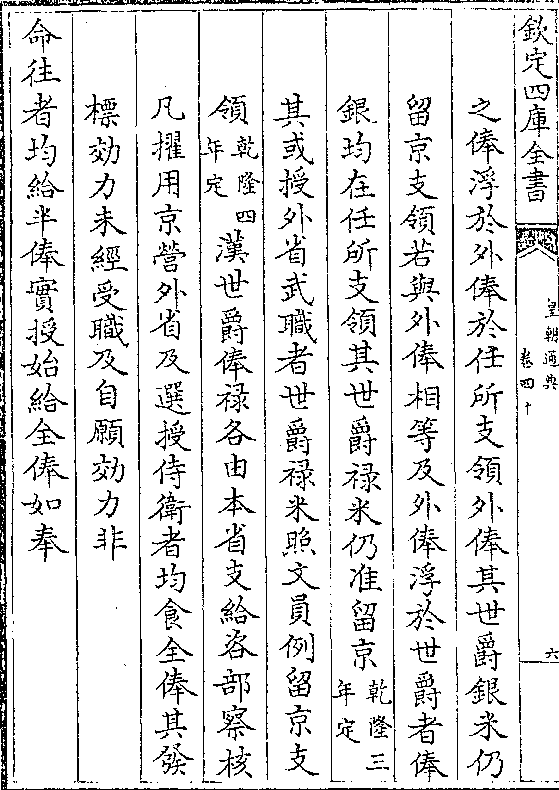 欽定四庫全書
皇朝通典
卷四十
六
之俸浮於外俸於任所支領外俸其世爵銀米仍
留京支領若與外俸相等及外俸浮於世爵者俸
銀均在任所支領其世爵禄米仍准留京乾隆三年定
其或授外省武職者世爵禄米照文員例留京支
領乾隆四年定漢世爵俸禄各由本省支給咨部察核
凡擢用京營外省及選授侍衛者均食全俸其發
標効力未經受職及自願効力非
命往者均給半俸實授始給全俸如奉